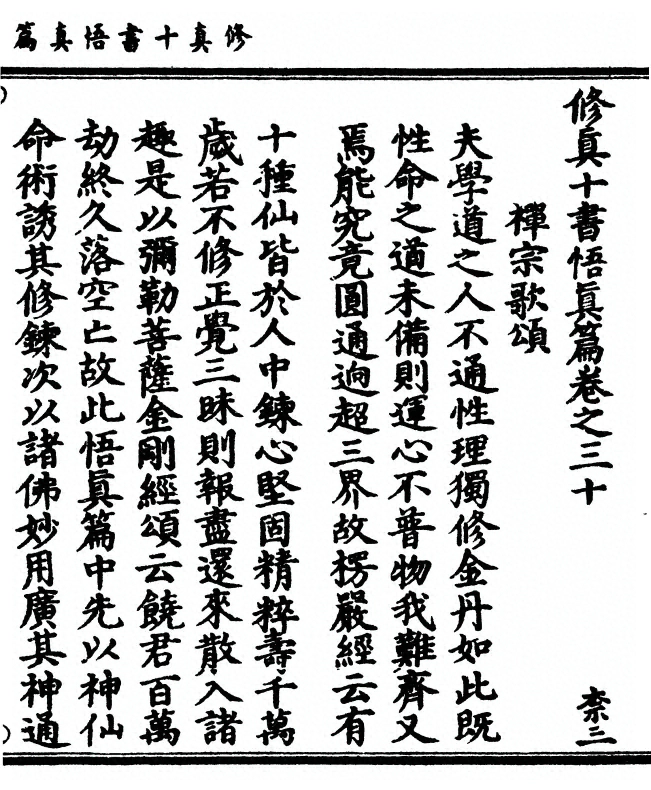 修真十書悟真篇
修真十書悟眞篇卷之三十
柰三
禪宗歌頌
夫學道之人不通性理獨修金丹如此既
性命之道未備則運心不普物我難齊又
焉能究竟圓通逈超三界故楞嚴經云有
十種仙皆於人中鍊心堅固精粹壽千萬
歲若不修正覺三昧則報盡還來散入諸
趣是以彌勒菩薩金剛經頌云饒君百萬
劫終久落空亡故此悟眞篇中先以神仙
命術誘其修鍊次以諸佛妙用廣其神通